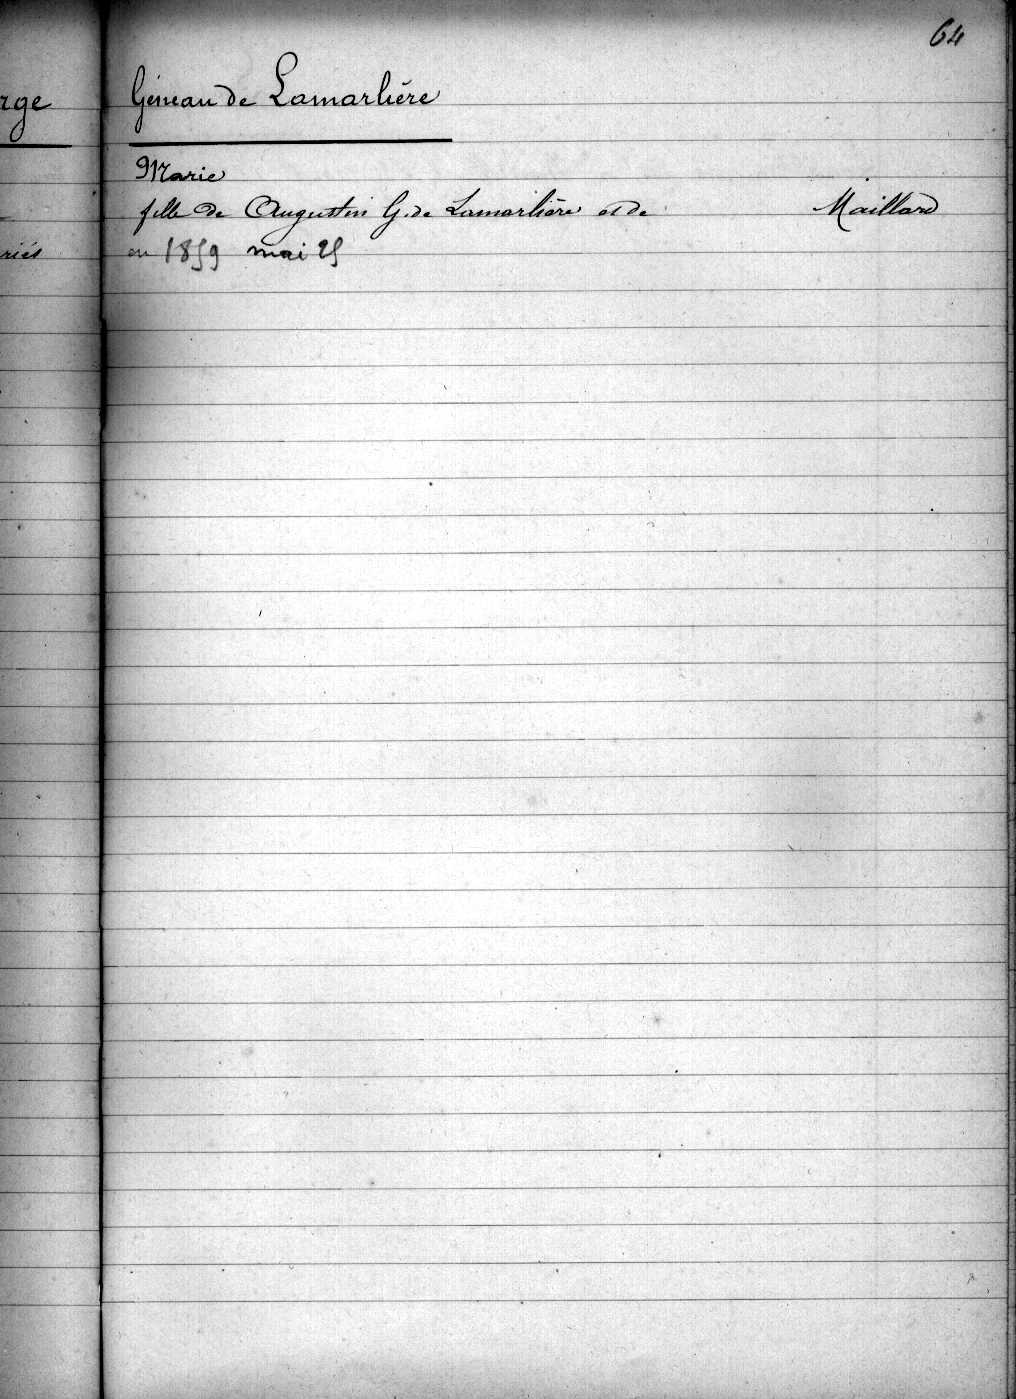 64
rge
Géneau de Lamarlière
Marie
fille de Augustin G. de Lamarlière et de Maillard
riés
en 1859 mai 25